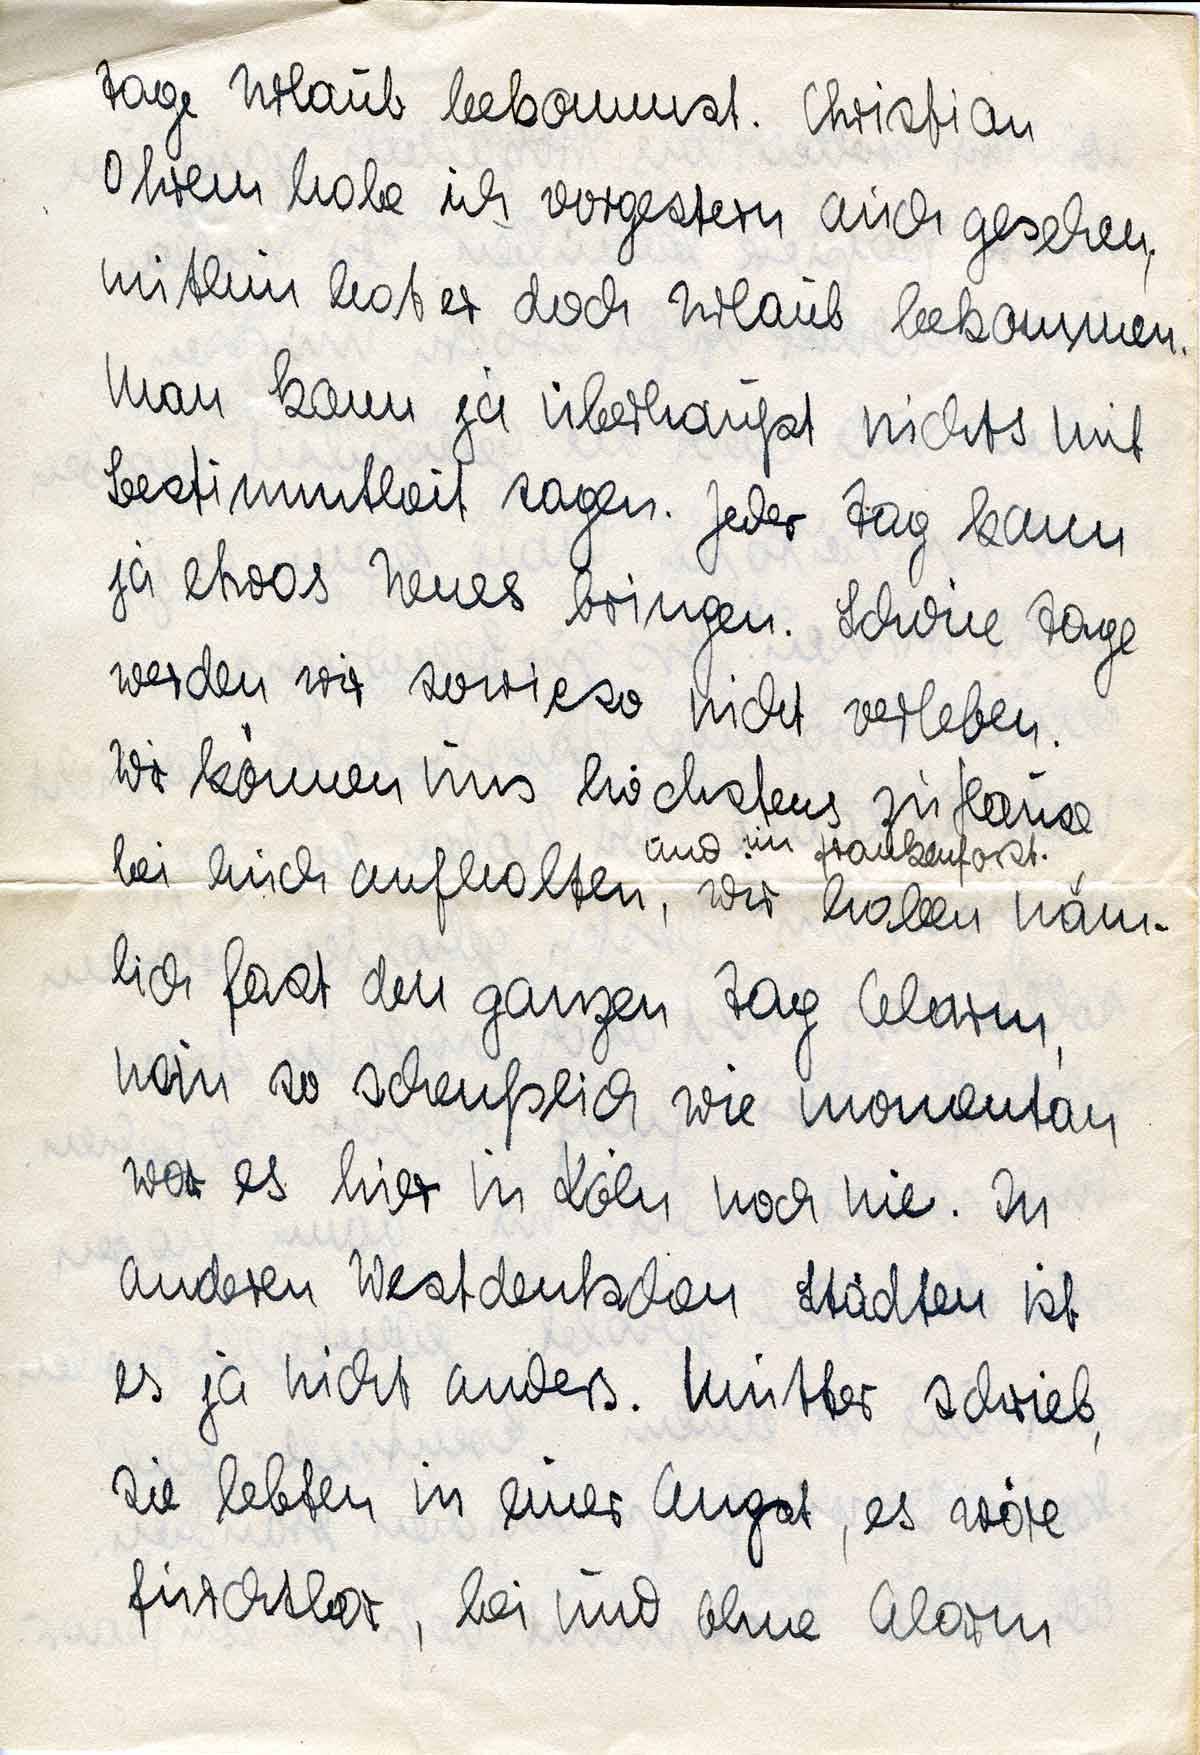 Tage Urlaub bekommst. Christian
Ohrem habe ich vorgestern auch gesehen,
mithin hat er doch Urlaub bekommen.
Man kann ja überhaupt nichts mit
Bestimmtheit sagen. Jeder Tag kann
ja etwas Neues bringen. Schöne Tage
werden wir sowieso nicht verleben.
Wir können uns höchstens zu Hause
und in Frankenforst.
bei mich aufhalten, wir haben näm-
lich fast den ganzen Tag Alarm,
nein so scheußlich wie momentan
war es hier in Köln noch nie. In
anderen Westdeutschen Städten ist
es ja nicht anders. Mutter schrieb,
sie lebten in einer Angst, es wäre
furchtbar, bei und ohne Alarm